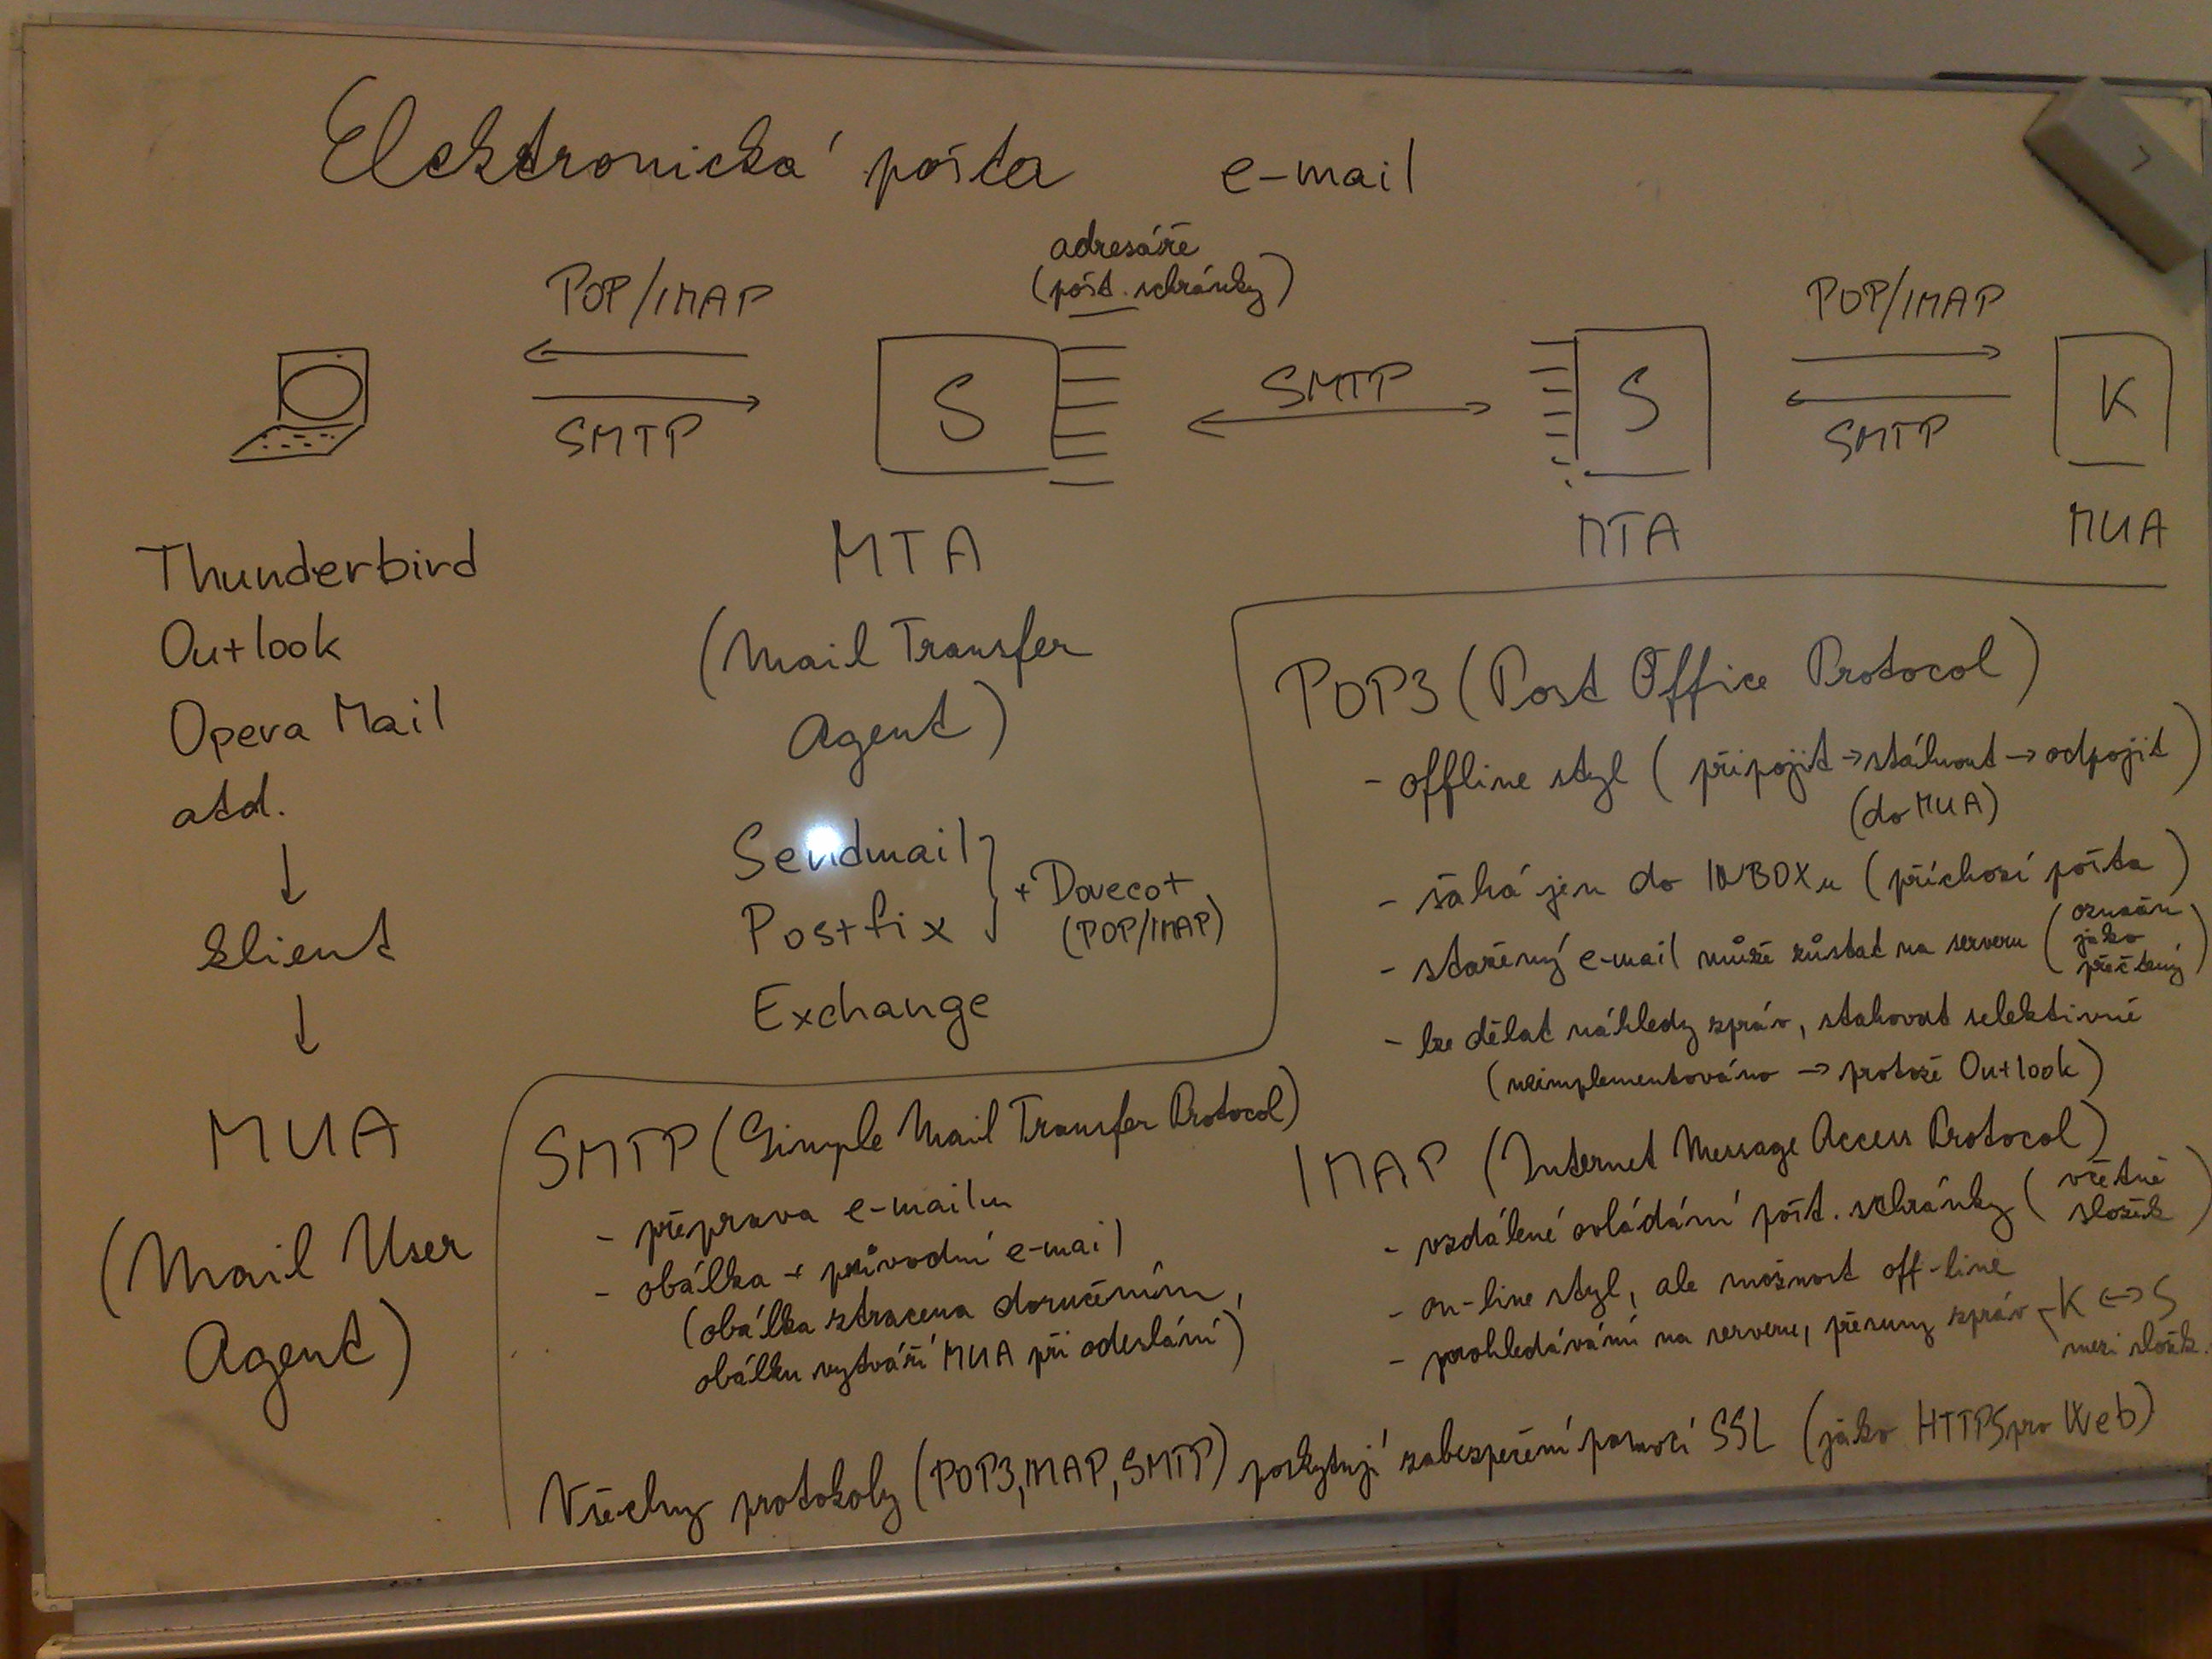 Elektronická pošta e-mail
adresáře
(pošt. schránky)
POP/IMAP
SMTP
S
SMTP
S
POP/IMAP
SMTP
K
Thunderbird
Outlook
Opera Mail
atd.
↓
klient
↓
MUA
(Mail User
Agent)
MTA
(Mail Transfer
Agent)
Sendmail
Postfix
+ Dovecot
(POP/IMAP)
Exchange
MTA
MUA
POP3 (Post Office Protocol)
- offline styl (připojit → stáhnout → odpojit)
(do MUA)
- sahá jen do INBOXu (příchozí pošta)
- stažený e-mail může zůstat na serveru (označen
jako
přečtený)
- lze dělat náhledy zpráv, stahovat selektivně
(neimplementováno → protože Outlook)
SMTP (Simple Mail Transfer Protocol)
- přeprava e-mailu
- obálka + původní e-mail
(obálka ztracena doručením,
obálku vytváří MUA při odeslání)
IMAP (Internet Message Access Protocol)
- vzdálené ovládání pošt. schránky (včetně
složek)
- on-line styl, ale možnost off-line
- prohledávání na serveru, přesuny zpráv K ↔ S
mezi složk.
Všechny protokoly (POP3, IMAP, SMTP) poskytují zabezpečení pomocí SSL (jako HTTPS pro Web)